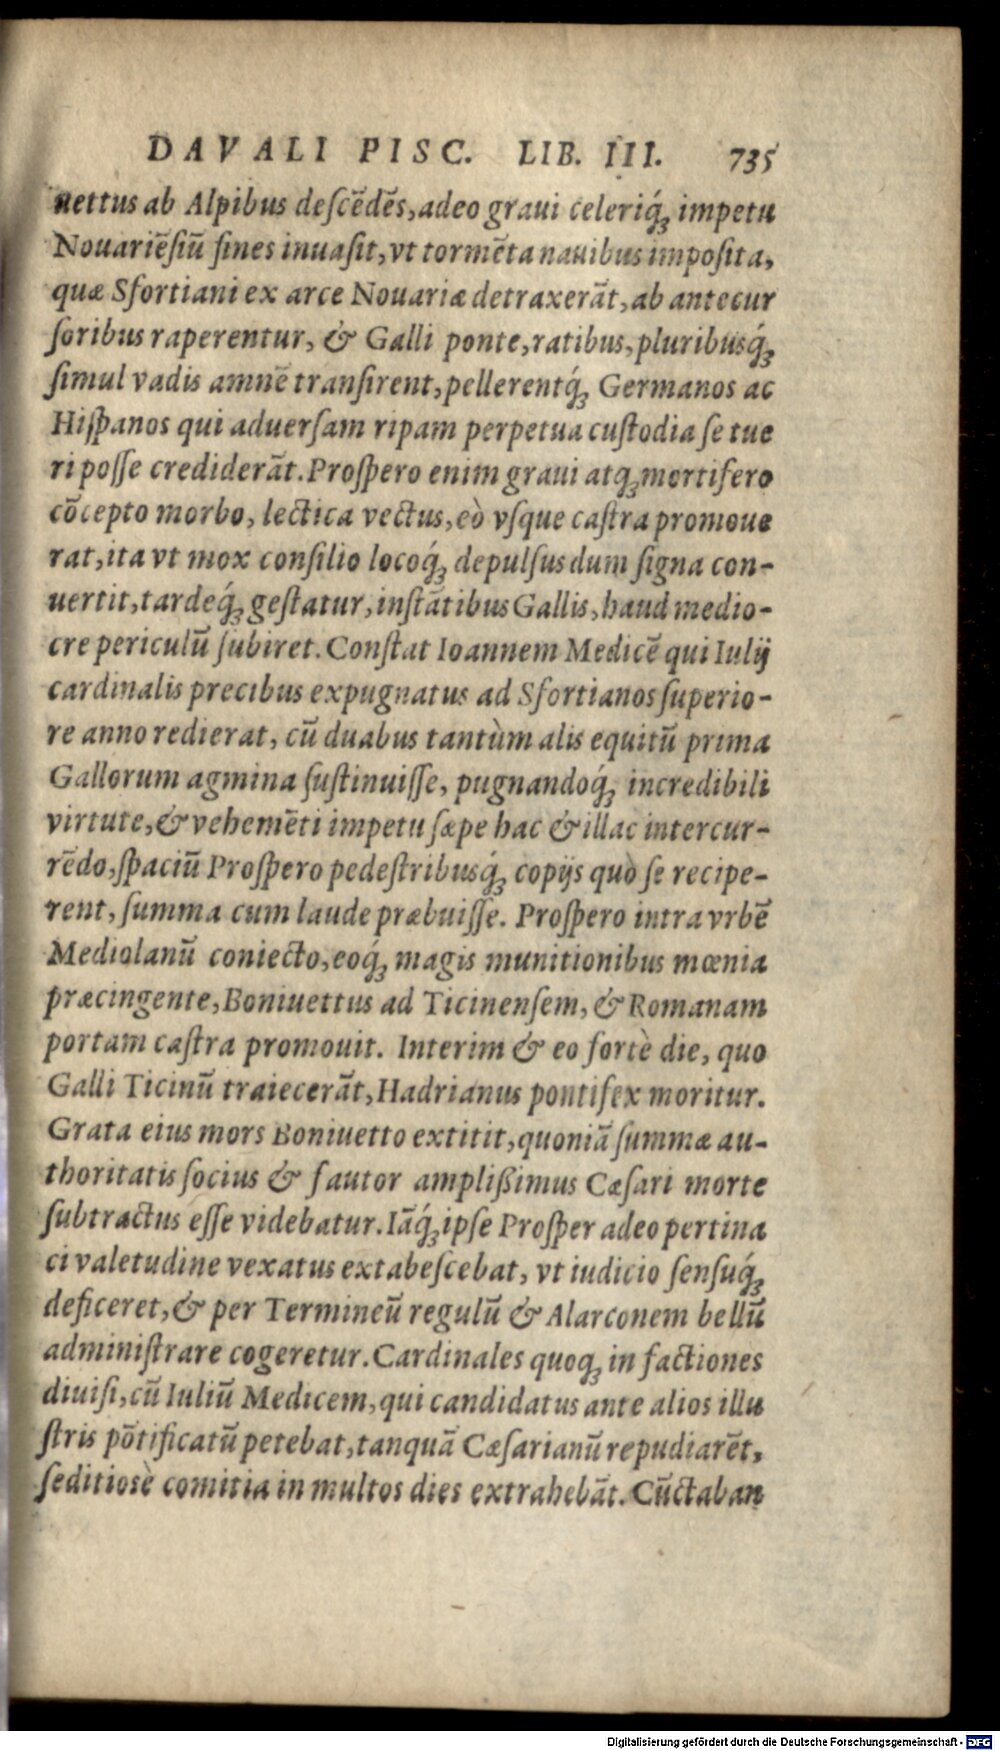 DAVALI PISC. LIB. III. 735
uettus ab Alpibus deſcẽdẽs, adeo graui celeriq́; impetu
Nouariẽſiũ fines inuaſit, vt tormẽta nauibus impoſita,
quæ Sfortiani ex arce Nouariæ detraxerãt, ab antecur
ſoribus raperentur, & Galli ponte, ratibus, pluribusq́;
ſimul vadis amnẽ tranſirent, pellerentq́; Germanos ac
Hiſpanos qui aduerſam ripam perpetua cuſtodia ſe tue
ri poſſe crediderãt. Proſpero enim graui atq; mortifero
cõcepto morbo, lectica vectus, eò vſque caſtra promoue
rat, ita vt mox conſilio locoq́; depulſus dum ſigna con-
uertit, tardeq́; geſtatur, inſtãtibus Gallis, haud medio-
cre periculũ ſubiret. Conſtat Ioannem Medicẽ qui Iulij
cardinalis precibus expugnatus ad Sfortianos ſuperio-
re anno redierat, cũ duabus tantùm alis equitũ prima
Gallorum agmina ſuſtinuiſſe, pugnandoq́; incredibili
virtute, & vehemẽti impetu ſæpe hac & illac intercur-
rẽdo, ſpaciũ Proſpero pedeſtribusq́; copijs quò ſe recipe-
rent, ſumma cum laude præbuiſſe. Proſpero intra vrbẽ
Mediolanũ coniecto, eoq́; magis munitionibus mœnia
præcingente, Boniuettus ad Ticinenſem, & Romanam
portam caſtra promouit. Interim & eo fortè die, quo
Galli Ticinũ traiecerãt, Hadrianus pontifex moritur.
Grata eius mors Boniuetto extitit, quoniã ſummæ au-
thoritatis ſocius & fautor amplißimus Cæſari morte
ſubtractus eſſe videbatur. Iãq́; ipſe Proſper adeo pertina
ci valetudine vexatus extabeſcebat, vt iudicio ſenſuq́;
deficeret, & per Termineũ regulũ & Alarconem bellũ
adminiſtrare cogeretur. Cardinales quoq; in factiones
diuiſi, cũ Iuliũ Medicem, qui candidatus ante alios illu
ſtris põtificatũ petebat, tanquã Cæſarianũ repudiarẽt,
ſeditiosè comitia in multos dies extrahebãt. Cũctaban
Digitalisierung gefördert durch die Deutsche Forschungsgemeinschaft - DFG